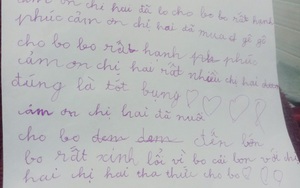 cảm ơn chị hai đã lo cho bo bo rất hạnh
phúc cảm ơn chị hai đã mua
cho bo bo rất hạnh phúc
cảm ơn chị hai rất nhiều chị hai
đúng là tốt bụng ♡♡♡♡
cảm ơn chị hai đã nuôi
cho bo đến lớn
bo rất xinh lỗi vì bo cải lon với chị
hai chị hai tha thứ cho bo ♡♡♡